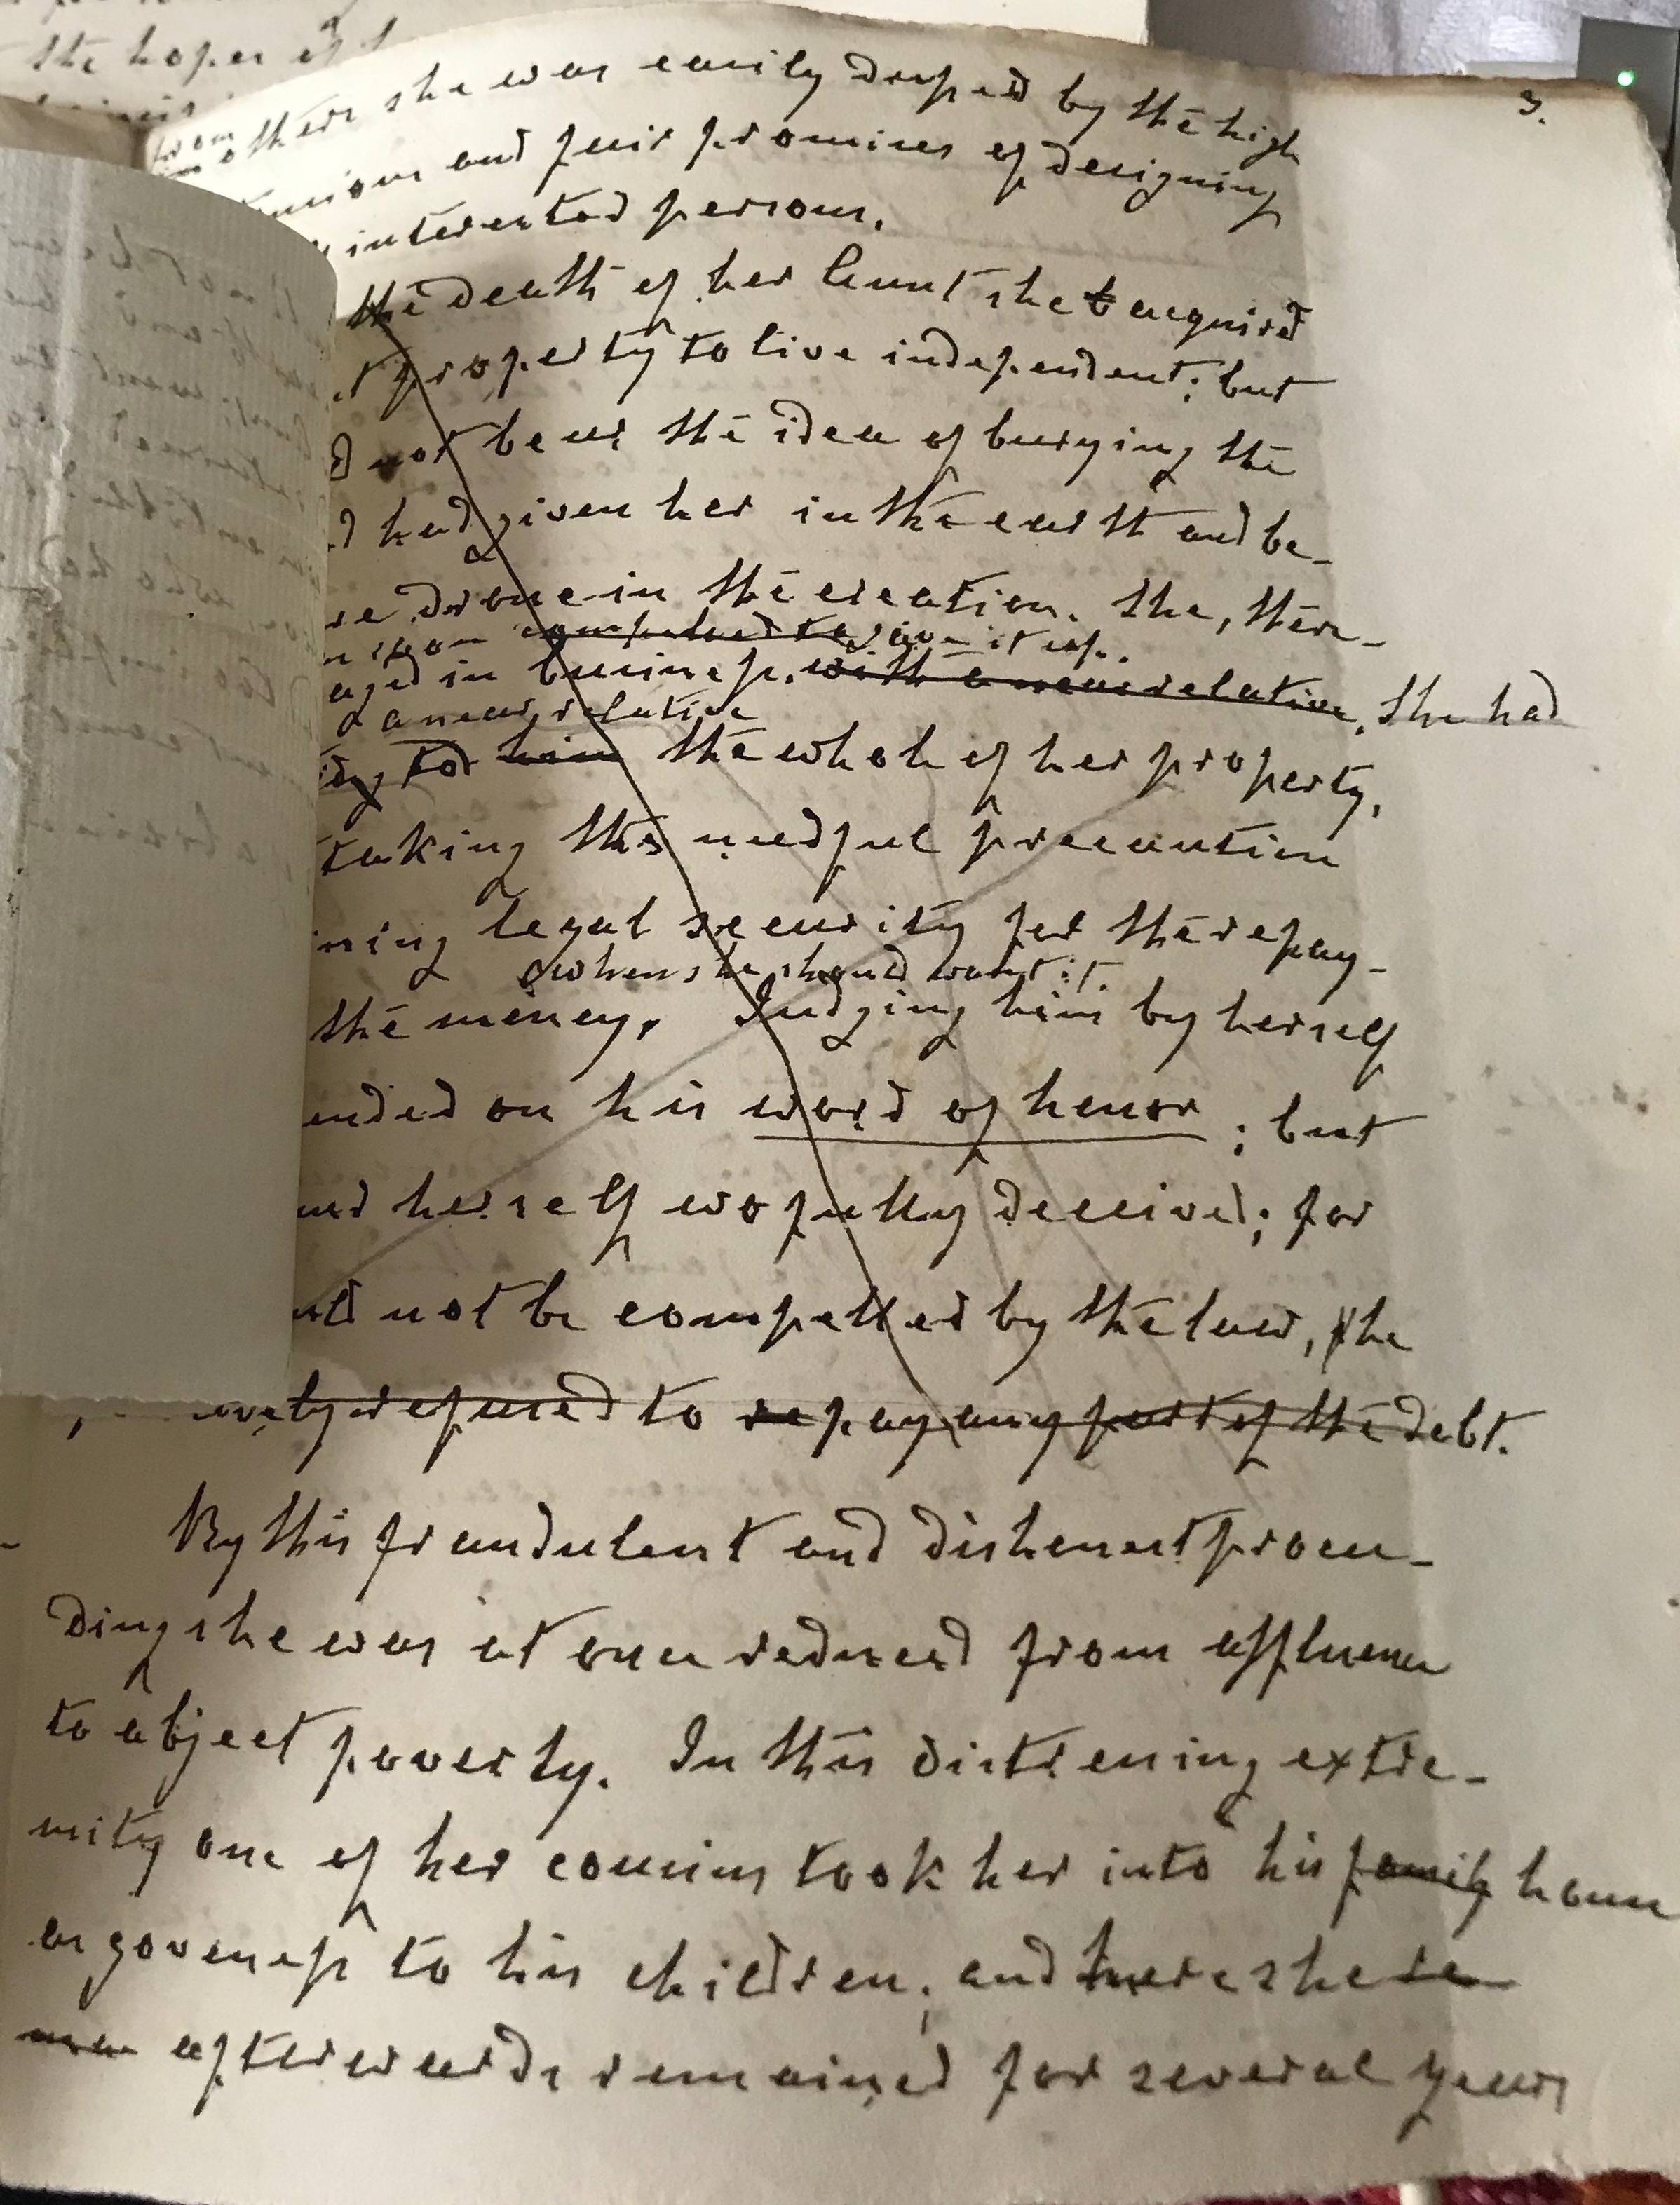 the hopes of
3.
from others she was easily dupped by the high
and fair promises of designing
interested persons.
the death of her Aunt she t acquired
property to live independent; but
not bear the idea of burying the
had given her in the earth and be-
drone in the creation. She, there-
soon compelled to give it up.
in business. with a near relative, She had
a near relative
to him the whole of her property,
taking the needful precaution
legal security for the repay-
when she should want it.
the money. Judging him by herself
on his word of honor; but
herself wofully deceived; for
not be compelled by the law, she
refused to repay any part of the debt.
By this fraudulent and dishonest procee-
ding she was at once reduced from affluence
to abject poverty. In this distressing extre-
mity one of her cousins took her into his family house
as governess to his children; and here she re
afterwards remained for several years